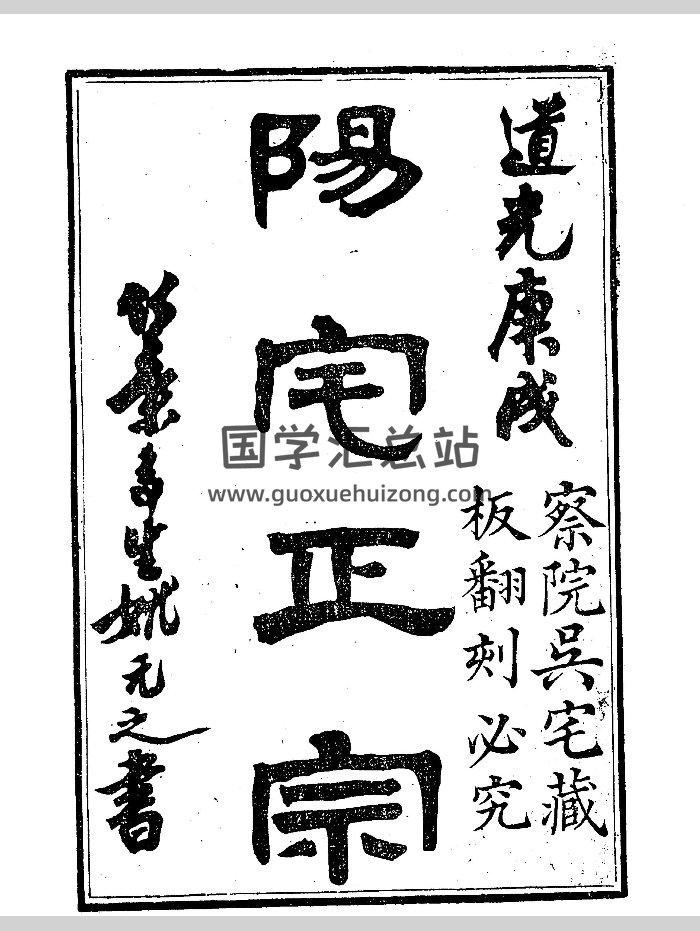 道光庚戌
察院吳宅藏
板翻刻必究
陽宅正宗
竹葉亭生姚元之書
国学汇总站
www.guoxuehuizong.com